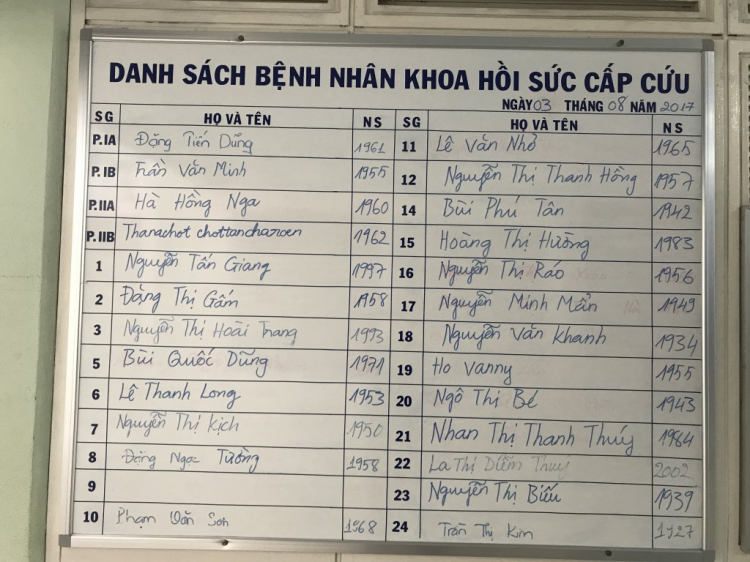 DANH SÁCH BỆNH NHÂN KHOA HỒI SỨC CẤP CỨU
NGÀY 03 THÁNG 08 NĂM 2017
SG HỌ VÀ TÊN NS SG HỌ VÀ TÊN NS
P.IA Đặng Tiến Dũng 1961 11 Lê Văn Nhỏ 1965
P.IB Trần Văn Minh 1955 12 Nguyễn Thị Thanh Hồng 1957
P.IIA Hà Hồng Nga 1960 14 Bùi Phú Tân 1942
P.IIB Thanachot chottancharoen 1962 15 Hoàng Thị Hường 1983
1 Nguyễn Tấn Giang 1997 16 Nguyễn Thị Ráo 1956
2 Đặng Thị Gấm 1958 17 Nguyễn Minh Mẩn 1949
3 Nguyễn Thị Hoài Trang 1993 18 Nguyễn Văn Khanh 1934
5 Bùi Quốc Dũng 1971 19 Ho Vanny 1955
6 Lê Thanh Long 1953 20 Ngô Thị Bé 1943
7 Nguyễn Thị Kịch 1950 21 Nhan Thị Thanh Thúy 1984
8 Đặng Ngọc Tường 1958 22 La Thị Diễm Thuy 2002
9 23 Nguyễn Thị Biếu 1939
10 Phạm Văn Sơn 1968 24 Trần Thị Kim 1927